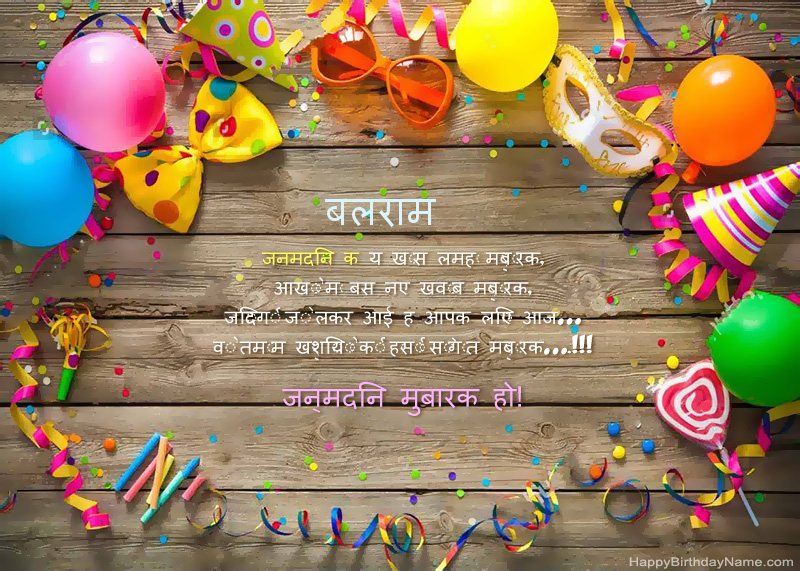 बलराम
जनमदनि क य खास लमहा मुबारक,
आखों में बसे नए खवाब मुबारक,
जदिंगी जो लेकर आई ह आपक लएि आज...
वो तमाम खुशयिों की हसीं सौगात मुबारक...!!!
जन्मदनि मुबारक हो!
HappyBirthdayName.com